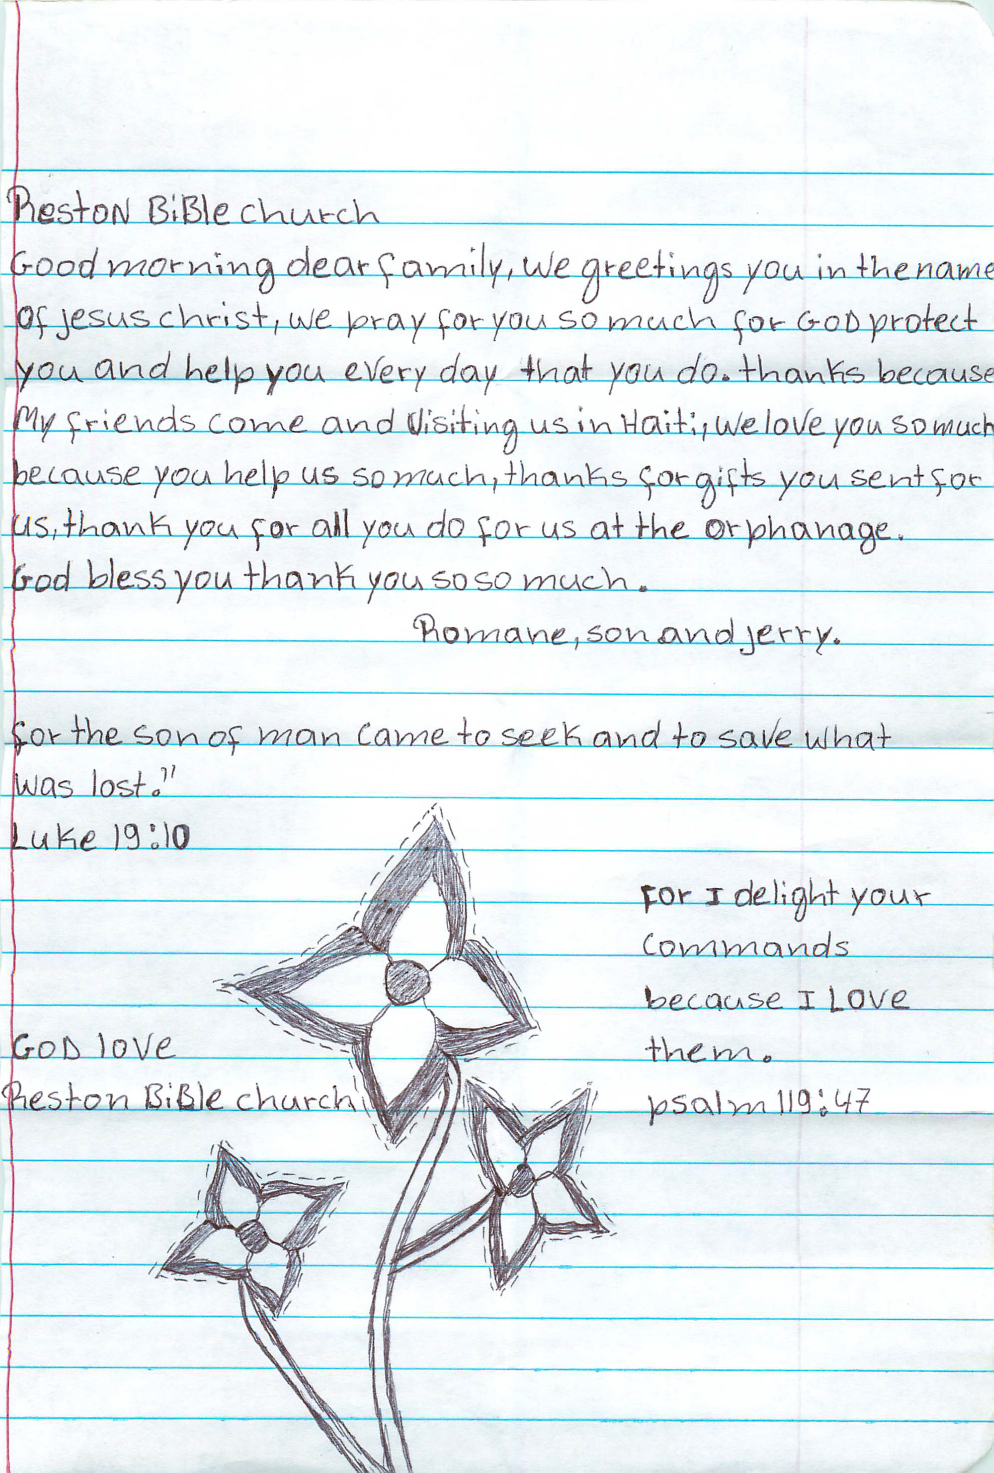 Reston BiBle church
Good morning dear family, we greetings you in the name
of jesus christ, we pray for you so much for GOD protect
you and help you every day that you do. thanks because
My friends come and Visiting us in Haiti, we love you so much
because you help us so much, thanks for gifts you sent for
us, thank you for all you do for us at the orphanage.
God bless you thank you so so much.
Romane, son and jerry.
for the son of man came to seek and to save what
was lost."
Luke 19:10
For I delight your
commands
because I Love
them.
psalm 119:47
GOD love
Reston BiBle church